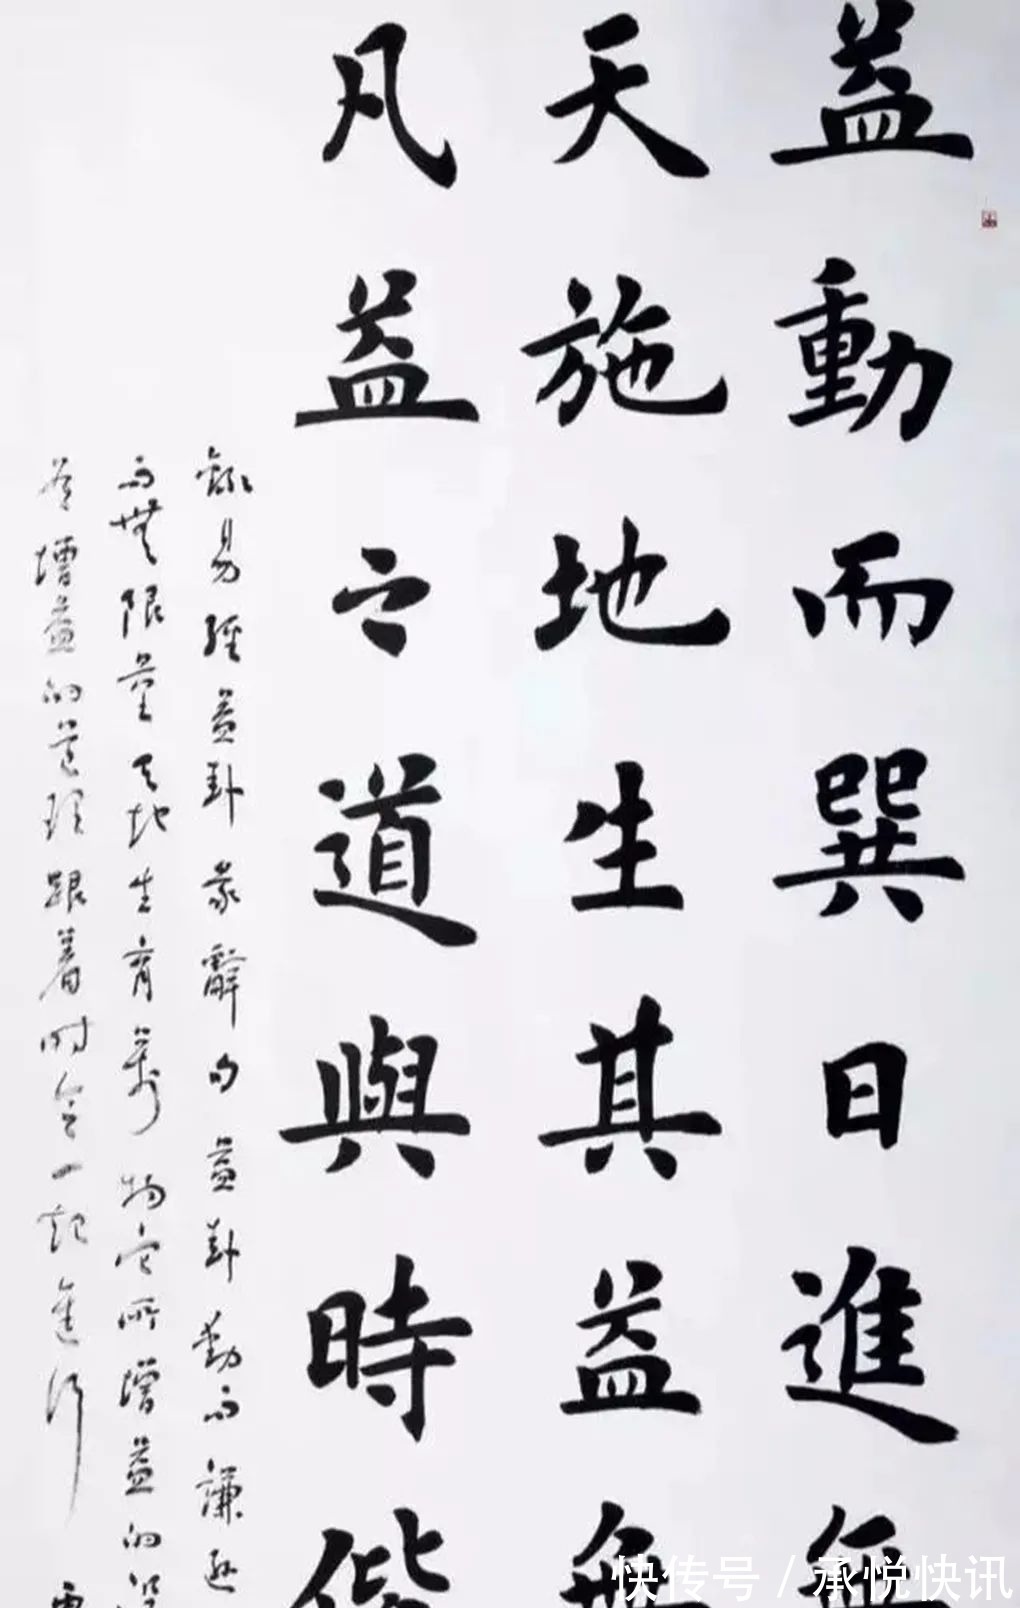 益動而巽日進無
天施地生其益無
凡益之道與時偕
錄易經益卦彖辭句益卦動而謙遜
而無限量天地生育萬物它所增益的
着增益的道理跟着時令一起進行
快传号/承悦快讯